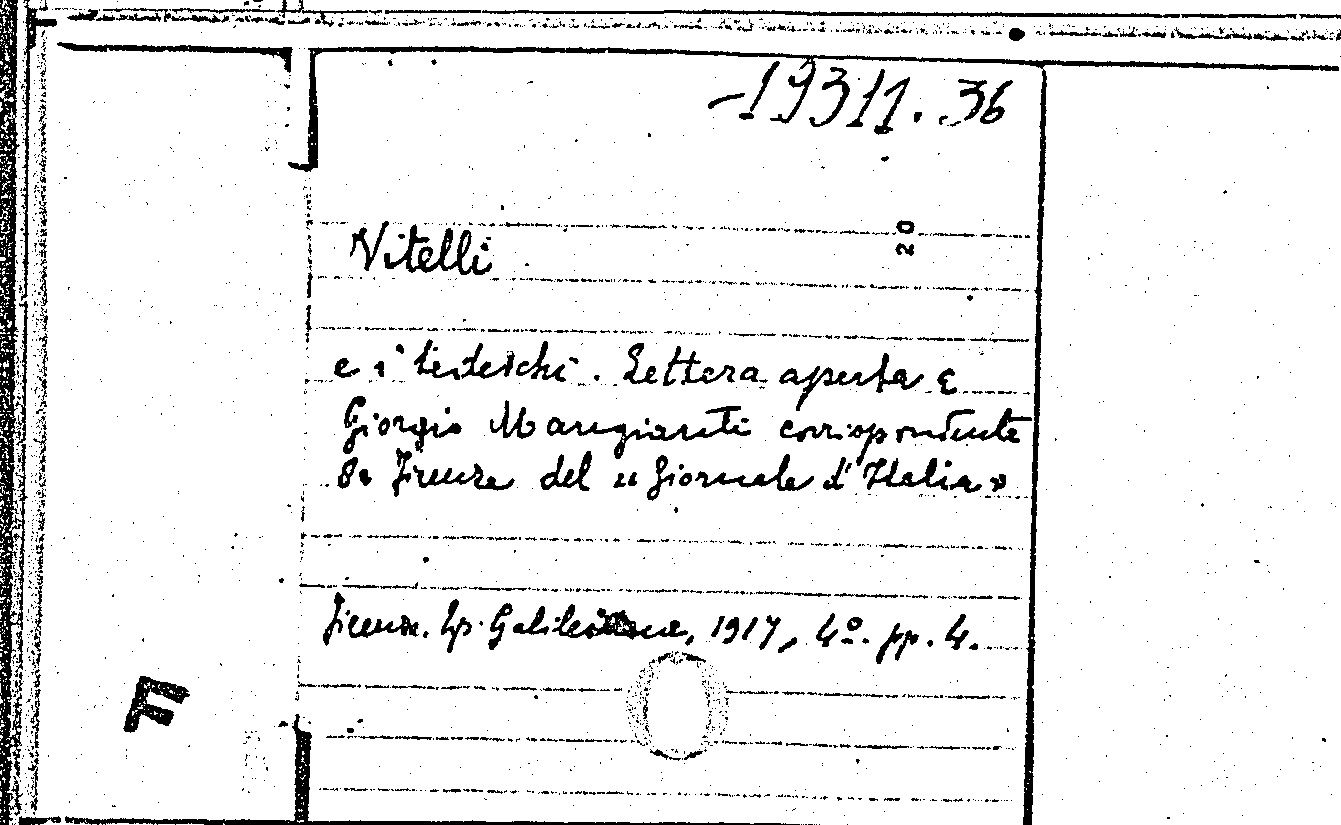 19311.36
20
Vitelli
e i tedeschi. Lettera aperta a
Giorgio corrispondente
da Firenze del "Giornale d'Italia»
Firenze. Tip. Galileiana, 1917, 4º. pp. 4.
F